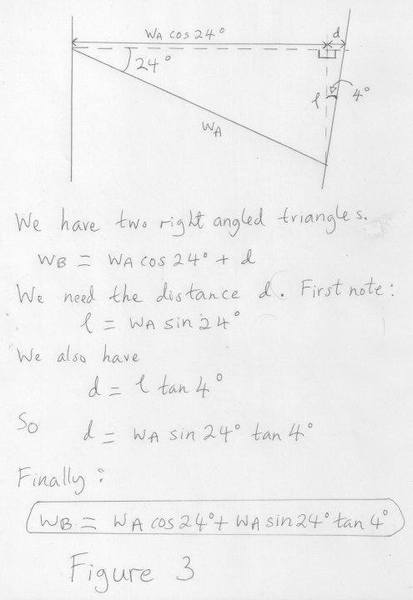 WA cos 24° d
24°
l 4°
WA
We have two right angled triangles.
WB = WA cos 24° + d
We need the distance d. First note:
l = WA sin 24°
We also have
d = l tan 4°
So d = WA sin 24° tan 4°
Finally:
WB = WA cos 24° + WA sin 24° tan 4°
Figure 3